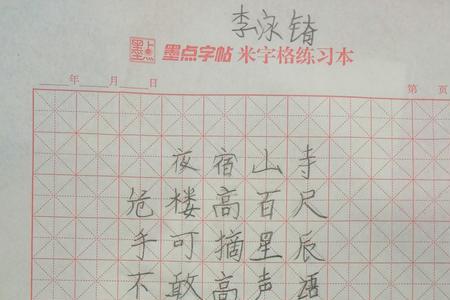 李泳锜
墨点 墨点字帖 米字格练习本
年 月 日 第 页
夜宿山寺
危楼高百尺
手可摘星辰
不敢高声语